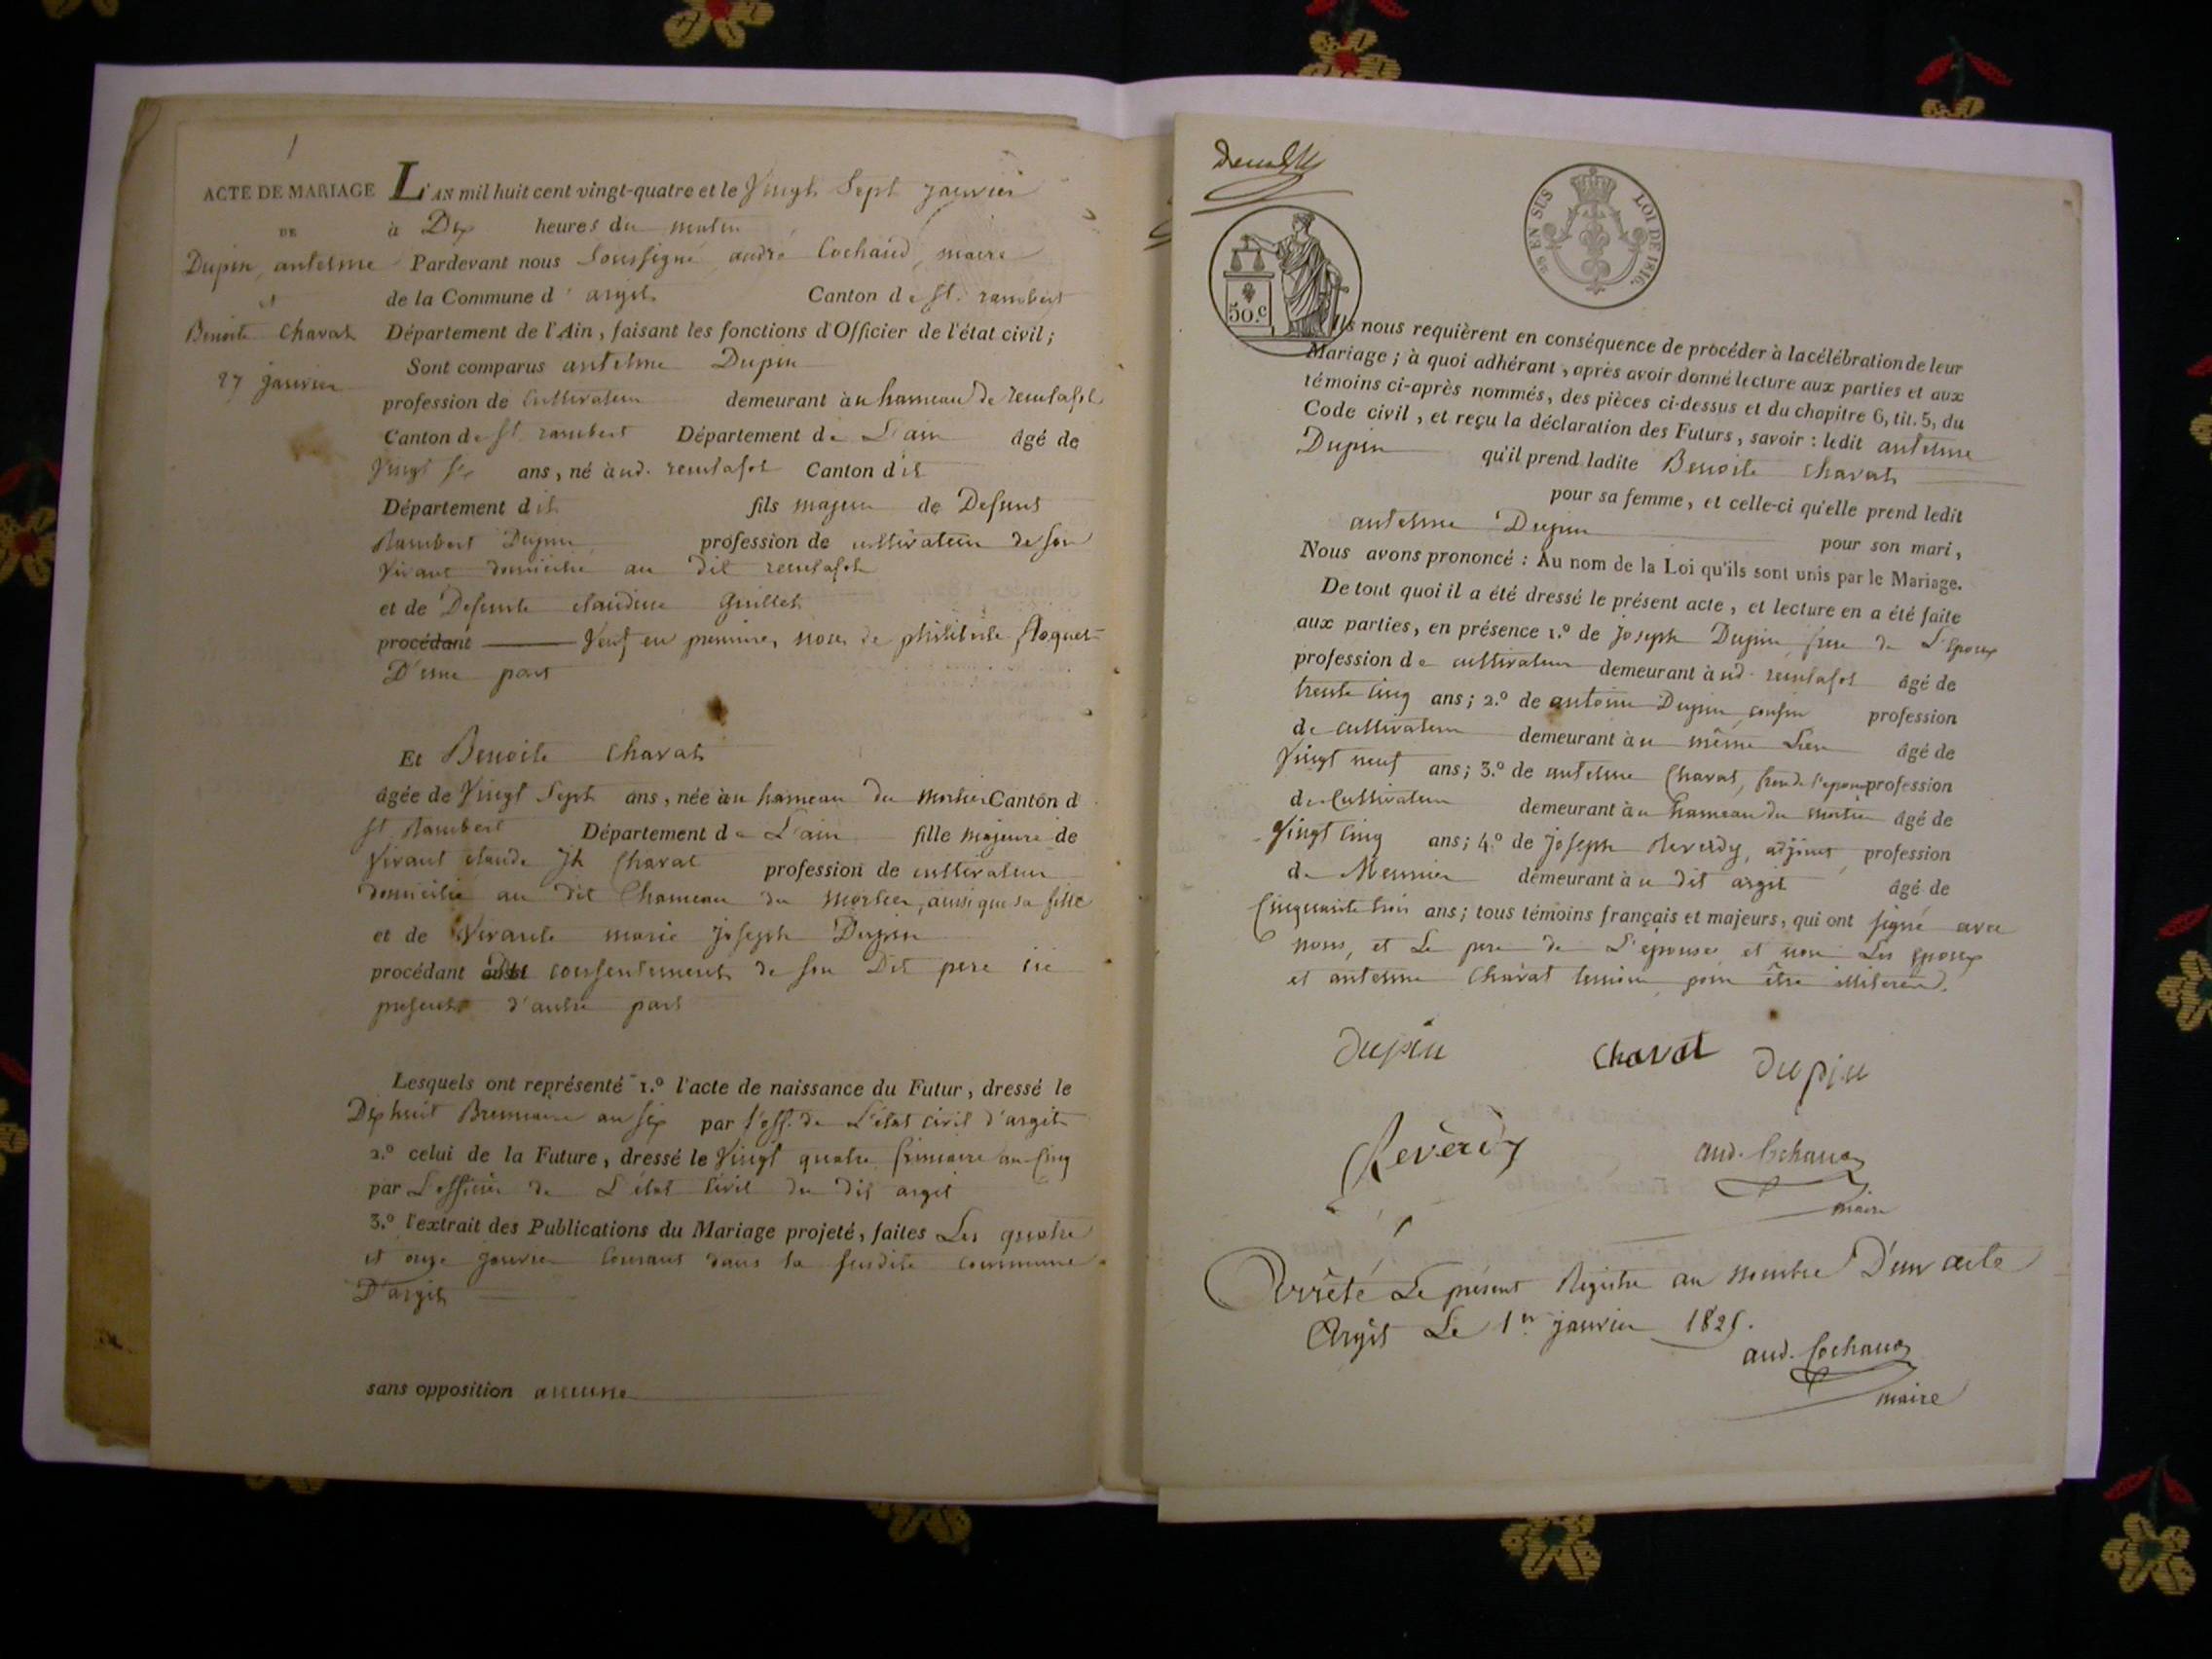 1
ACTE DE MARIAGE
DE
Dupin, antelme
et
Benoite Chavat
27 janvier
L'AN mil huit cent vingt-quatre et le Vingt Sept janvier
à Dix heures du matin
Pardevant nous Soussigné andré Cochaud, maire
de la Commune d'argit Canton de St. rambert
Département de l'Ain, faisant les fonctions d'Officier de l'état civil;
Sont comparus antelme Dupin
profession de Cultivateur demeurant à u hameau de reculafol
Canton de St. rambert Département de L'ain âgé de
Vingt six ans, né à ud. reculafol Canton dit
Département dit fils majeur de Defunt
Rambert Dupin profession de cultivateur de son
Vivant domicilié au dit reculafol
et de Defunte claudine Guillet
procédant Veuf en premiere, noces de philiberte
D'une part
Et Benoite Chavat
âgée de Vingt Sept ans, née à u hameau du mortier Canton d
St Rambert Département de L'ain fille majeure de
Vivant claude Jh Chavat profession de cultivateur
domicilié au dit hameau du mortier, ainsi que sa fille
et de Vivante marie joseph Dupin
procédant consentement de son Dit pere ici
present d'autre part
Lesquels ont représenté 1.º l'acte de naissance du Futur, dressé le
Dix huit Brumaire an six par l'off. de L'état civil d'argit
2.º celui de la Future, dressé le Vingt quatre frimaire an Cinq
par L'officier de L'état Civil du dit argit
3.º l'extrait des Publications du Mariage projeté, faites Les quatre
et onze janvier Courant dans la susdite commune
D'argit
sans opposition aucune
50.c
EN SUS LOI DE 1816.
Ils nous requièrent en conséquence de procéder à la célébration de leur
Mariage; à quoi adhérant, après avoir donné lecture aux parties et aux
témoins ci-après nommés, des pièces ci-dessus et du chapitre 6, tit. 5, du
Code civil, et reçu la déclaration des Futurs, savoir: ledit antelme
Dupin qu'il prend ladite Benoite Chavat
pour sa femme, et celle-ci qu'elle prend ledit
antelme Dupin pour son mari,
Nous avons prononcé: Au nom de la Loi qu'ils sont unis par le Mariage.
De tout quoi il a été dressé le présent acte, et lecture en a été faite
aux parties, en présence 1.º de joseph Dupin, frere de L'Epoux
profession de cultivateur demeurant à ud. reculafol âgé de
trente Cinq ans; 2.º de antoine Dupin, cousin profession
de cultivateur demeurant à u même Lieu âgé de
Vingt neuf ans; 3.º de antelme Chavat, profession
de Cultivateur demeurant à u hameau du mortier âgé de
Vingt Cinq ans; 4.º de joseph Reverdy, adjoint, profession
de Meunier demeurant à u dit argit âgé de
Cinquante trois ans; tous témoins français et majeurs, qui ont signé avec
nous, et Le pere de L'épouse, et non Les Epoux
et antelme Chavat temoin pour être
dupin Chavat dupin
Reverdy and. Cochaud
maire
Arrêté Le présent Registre au nombre D'un acte
Argit Le 1er janvier 1825.
and. Cochaud
maire